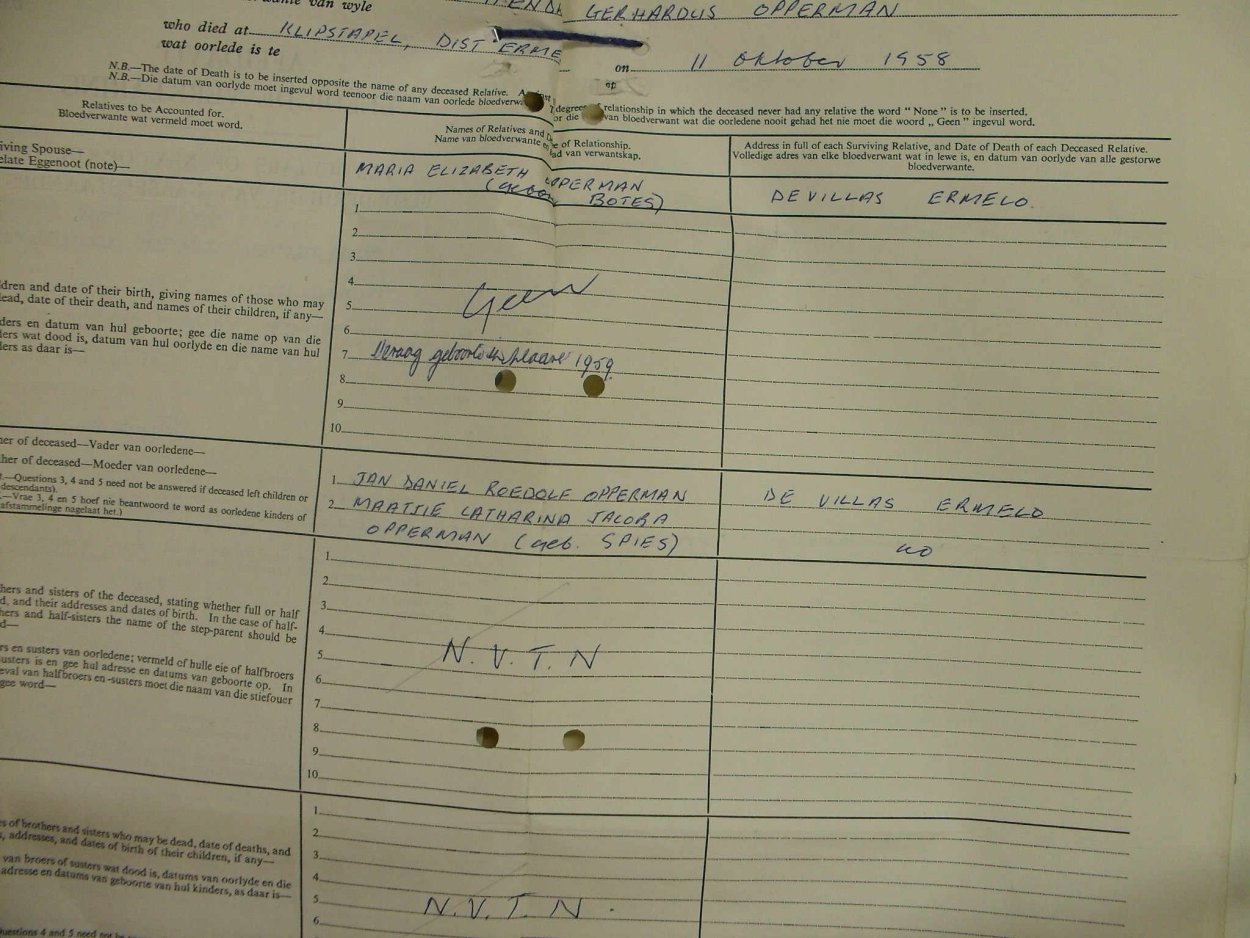 van wyle
GERHARDUS OPPERMAN
who died at KLIPSTAPEL, DIST ERME
wat oorlede is te
on 11 Oktober 1958
op
N.B.—The date of Death is to be inserted opposite the name of any deceased Relative.
N.B.—Die datum van oorlyde moet ingevul word teenoor die naam van oorlede bloedverw
degree relationship in which the deceased never had any relative the word " None " is to be inserted.
or die van bloedverwant wat die oorledene nooit gehad het nie moet die woord „ Geen " ingevul word.
Relatives to be Accounted for.
Bloedverwante wat vermeld moet word.
Names of Relatives and of Relationship.
Name van bloedverwante van verwantskap.
Address in full of each Surviving Relative, and Date of Death of each Deceased Relative.
Volledige adres van elke bloedverwant wat in lewe is, en datum van oorlyde van alle gestorwe
bloedverwante.
iving Spouse—
elate Eggenoot (note)—
MARIA ELIZABETH OPPERMAN
BOTES)
DEVILLAS ERMELO.
ldren and date of their birth, giving names of those who may
lead, date of their death, and names of their children, if any—
ders en datum van hul geboorte; gee die name op van die
ders wat dood is, datum van hul oorlyde en die name van hul
ders as daar is—
1
2
3
4
5
Geen
6
7
1959
8
9
10
her of deceased—Vader van oorledene—
ther of deceased—Moeder van oorledene—
.—Questions 3, 4 and 5 need not be answered if deceased left children or
descendants).
.—Vrae 3, 4 en 5 hoef nie beantwoord te word as oorledene kinders of
afstammelinge nagelaat het.)
1 JAN DANIEL ROEDOLF OPPERMAN
DE VILLAS ERMELO
2 MAATTIE CATHARINA JACOBA
OPPERMAN (geb. SPIES)
hers and sisters of the deceased, stating whether full or half
d, and their addresses and dates of birth. In the case of half-
hers and half-sisters the name of the step-parent should be
d—
rs en susters van oorledene; vermeld of hulle eie of halfbroers
usters is en gee hul adresse en datums van geboorte op. In
eval van halfbroers en -susters moet die naam van die stiefouer
gee word—
1
2
3
4
5 N. V. T. N
6
7
8
9
10
es of brothers and sisters who may be dead, date of deaths, and
s, addresses, and dates of birth of their children, if any—
van broers of susters wat dood is, datums van oorlyde en die
adresse en datums van geboorte van hul kinders, as daar is—
1
2
3
4
5 N.V.T. N.
6
Questions 4 and 5 need not be